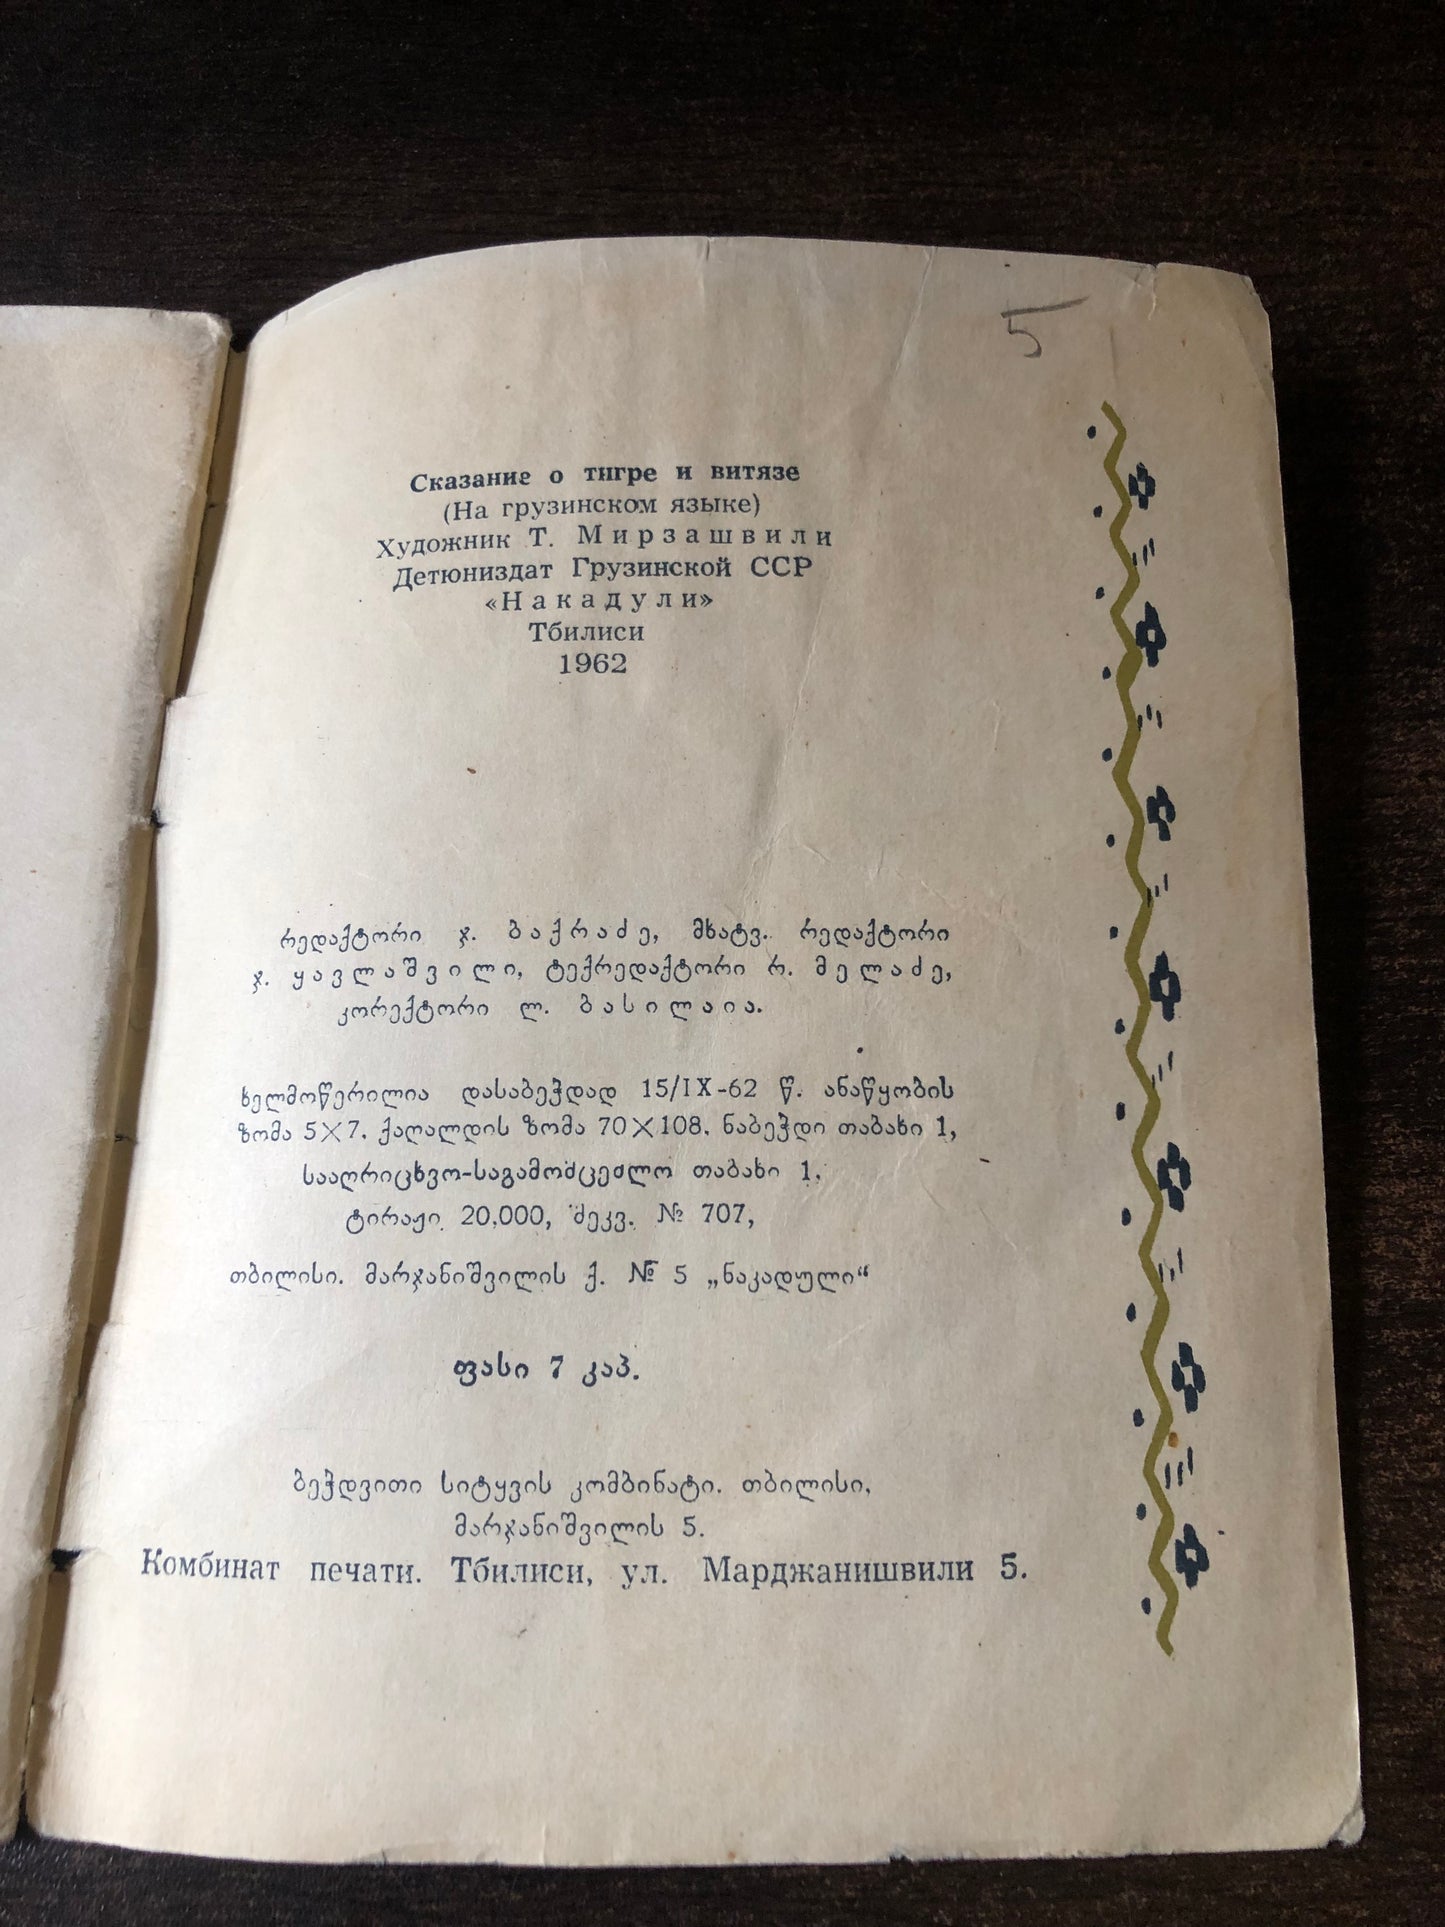 5
Сказание о тигре и витязе
(На грузинском языке)
Художник Т. Мирзашвили
Детюниздат Грузинской ССР
«Накадули»
Тбилиси
1962
რედაქტორი ჯ. ბაქრაძე, მხატვ. რედაქტორი
ჯ. ყავლაშვილი, ტექრედაქტორი რ. მელაძე,
კორექტორი ლ. ბასილაია.
ხელმოწერილია დასაბეჭდად 15/IX-62 წ. ანაწყობის
ზომა 5×7. ქაღალდის ზომა 70×108. ნაბეჭდი თაბახი 1,
სააღრიცხვო-საგამომცემლო თაბახი 1.
ტირაჟი 20.000, შეკვ. № 707,
თბილისი. მარჯანიშვილის ქ. № 5 „ნაკადული“
ფასი 7 კაპ.
ბეჭდვითი სიტყვის კომბინატი. თბილისი,
მარჯანიშვილის 5.
Комбинат печати. Тбилиси, ул. Марджанишвили 5.